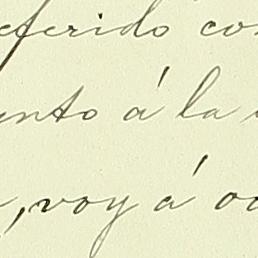 eferido co
ento á la
, voy á oc